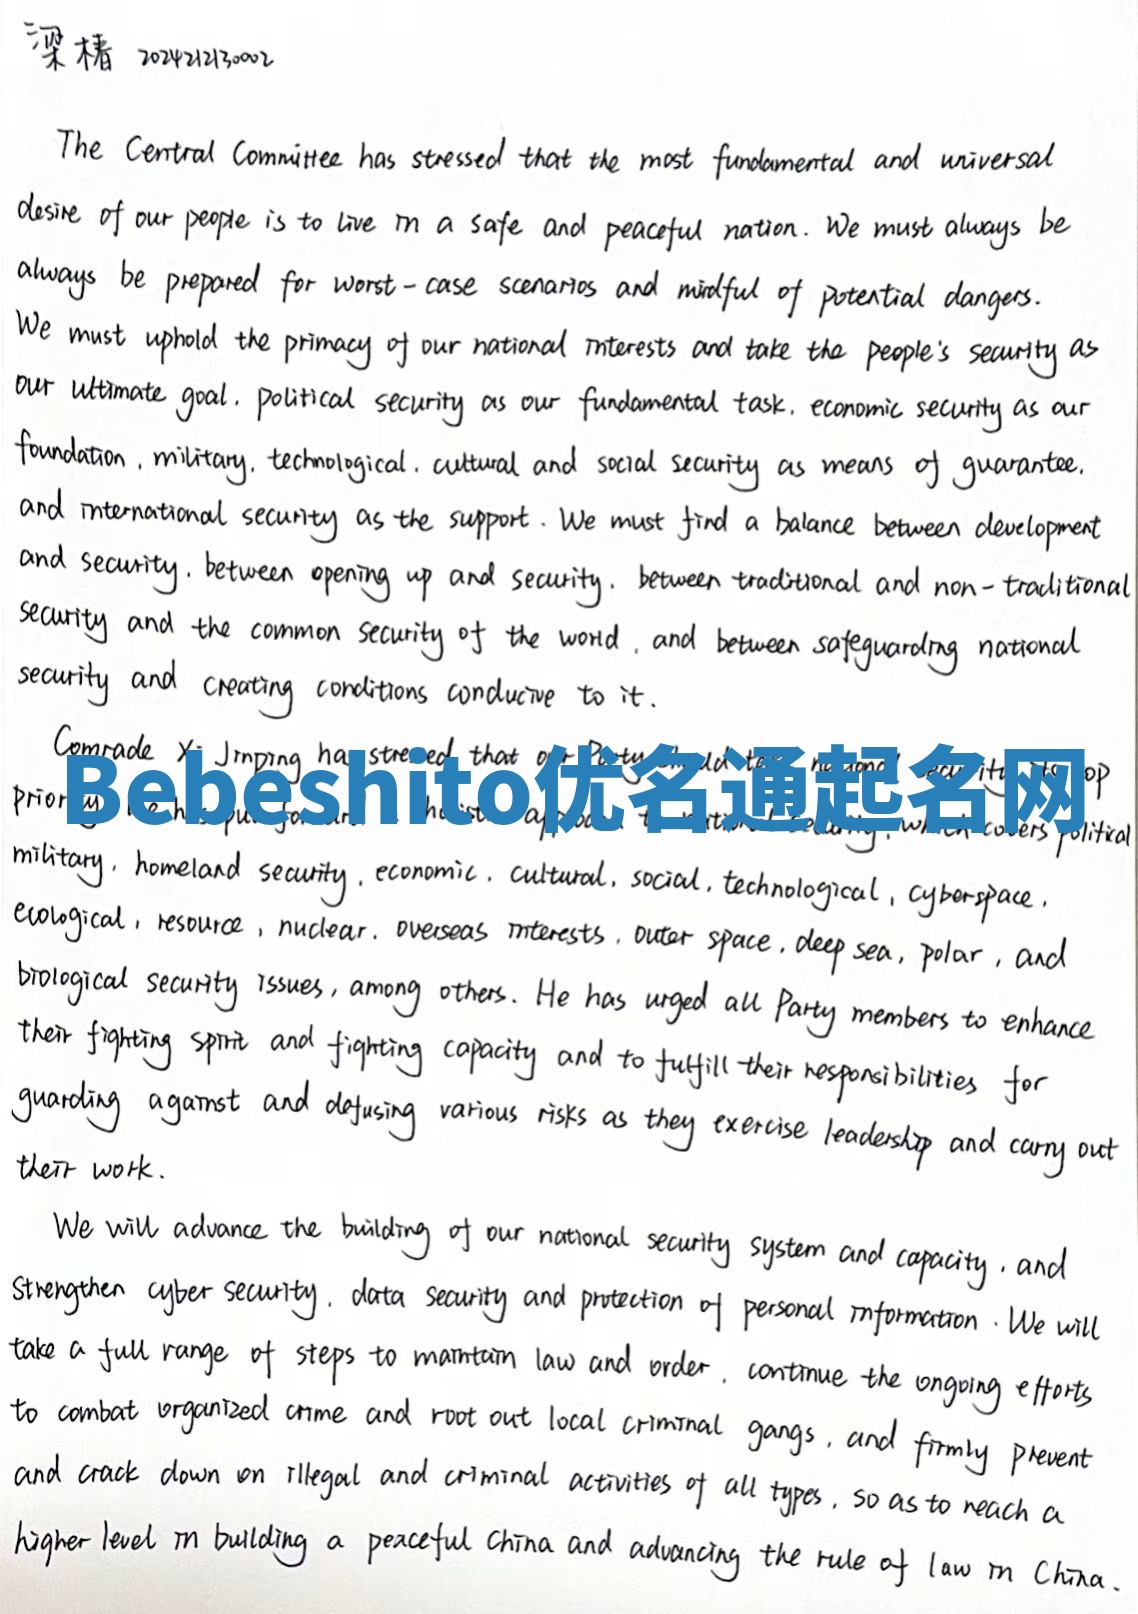 梁椿 2024212130002
The Central Committee has stressed that the most fundamental and universal
desire of our people is to live in a safe and peaceful nation. We must always be
always be prepared for worst-case scenarios and mindful of potential dangers.
We must uphold the primacy of our national interests and take the people's security as
our ultimate goal, political security as our fundamental task, economic security as our
foundation, military, technological, cultural and social security as means of guarantee,
and international security as the support. We must find a balance between development
and security, between opening up and security, between traditional and non-traditional
security and the common security of the world, and between safeguarding national
security and creating conditions conducive to it.
Comrade Xi Jinping has stressed that our Party should take national security its top
Bebeshito优名通起名网
priority. He has put forward a holistic approach to national security, which covers political
military, homeland security, economic, cultural, social, technological, cyberspace,
ecological, resource, nuclear, overseas interests, outer space, deep sea, polar, and
biological security issues, among others. He has urged all Party members to enhance
their fighting spirit and fighting capacity and to fulfill their responsibilities for
guarding against and defusing various risks as they exercise leadership and carry out
their work.
We will advance the building of our national security system and capacity, and
strengthen cyber security, data security and protection of personal information. We will
take a full range of steps to maintain law and order, continue the ongoing efforts
to combat organized crime and root out local criminal gangs, and firmly prevent
and crack down on illegal and criminal activities of all types, so as to reach a
higher level in building a peaceful China and advancing the rule of law in China.